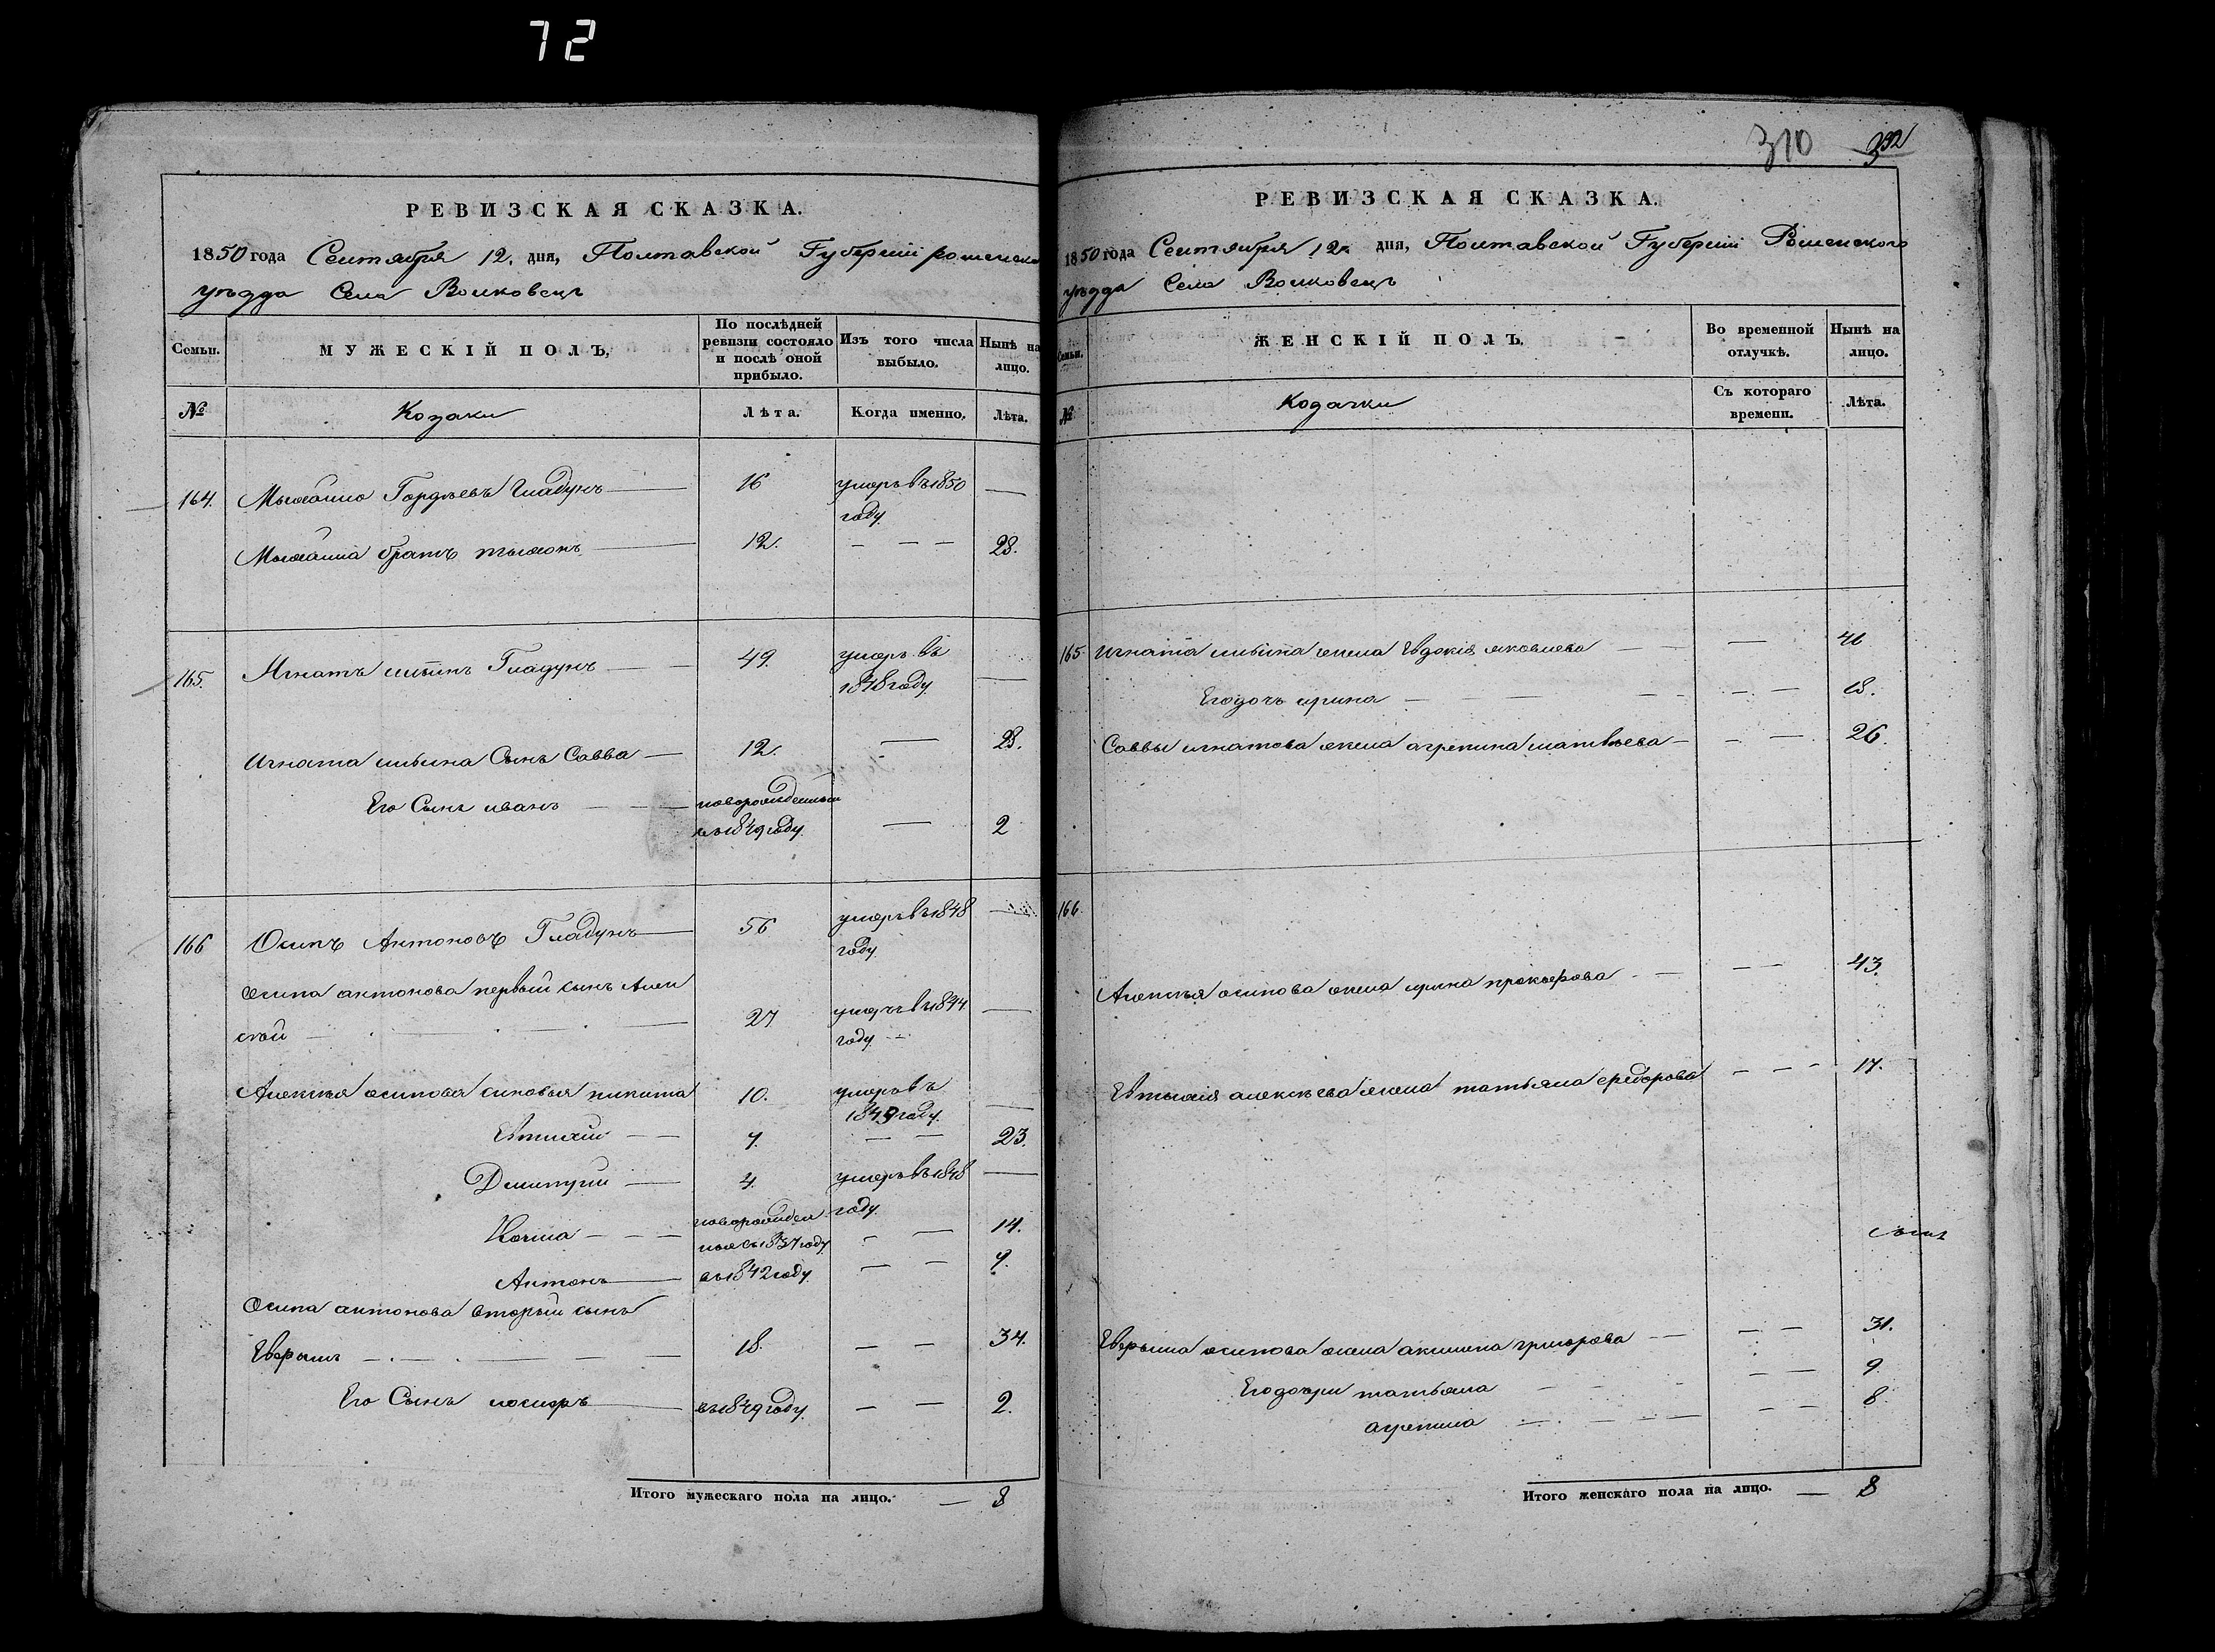 72
РЕВИЗСКАЯ СКАЗКА.
1850 года Сентября 12. дня, Полтавской Губерніи роменска
уъзда Села Волковецъ
Семьи. МУЖЕСКІЙ ПОЛЪ, По послѣдней ревизіи состояло и послѣ оной прибыло. Изъ того числа выбыло. Нынѣ на лицо.
№ Козаки Лѣта. Когда именно. Лѣта.
164. Гордѣевъ Гладунъ 16 умеръ въ 1850
году
братъ 12. 28.
165. Игнатъ Гладунъ 49. умеръ въ
1848 году
Игната ильина Сынъ Савва 12. 28.
Его Сынъ иванъ новорожденный
въ 1849 году 2
166 Осипъ Антоновъ Гладунъ 56 умеръ въ 1848
году
осипа антонова первый сынъ Алек
сѣй 27. умеръ въ 1844
году
Алексѣя осипова синовья никита 10. умеръ въ
1843 году
Евтихій 7. 23.
Дмитрій 4. умеръ въ 1848
году
Козма новорожден
ные въ 1837 году 14.
Антонъ въ 1842 году 9.
Осипа антонова вторый сынъ
18. 34.
Его Сынъ іосифъ въ 1849 году 2.
Итого мужескаго пола на лицо. 8
310 332
РЕВИЗСКАЯ СКАЗКА.
1850 года Сентября 12. дня, Полтавской Губерніи Роменского
уѣзда Села Волковецъ
Семьи. ЖЕНСКІЙ ПОЛЪ. Во временной отлучкѣ. Нынѣ на лицо.
№ Козачки Съ котораго времени. Лѣта.
165 Игната ильина жена Евдокія яковлева
Его дочъ ирина 18.
Саввы игнатова жена агрепина матвѣева 26.
166.
Алексѣя осипова жена ирина прокофова 43.
Евтихія алексѣева жена татьяна федорова 17.
осипова жена акилина григорова 31.
Его дочери татьяна 9
агрепина 8.
Итого женскаго пола на лицо. 8